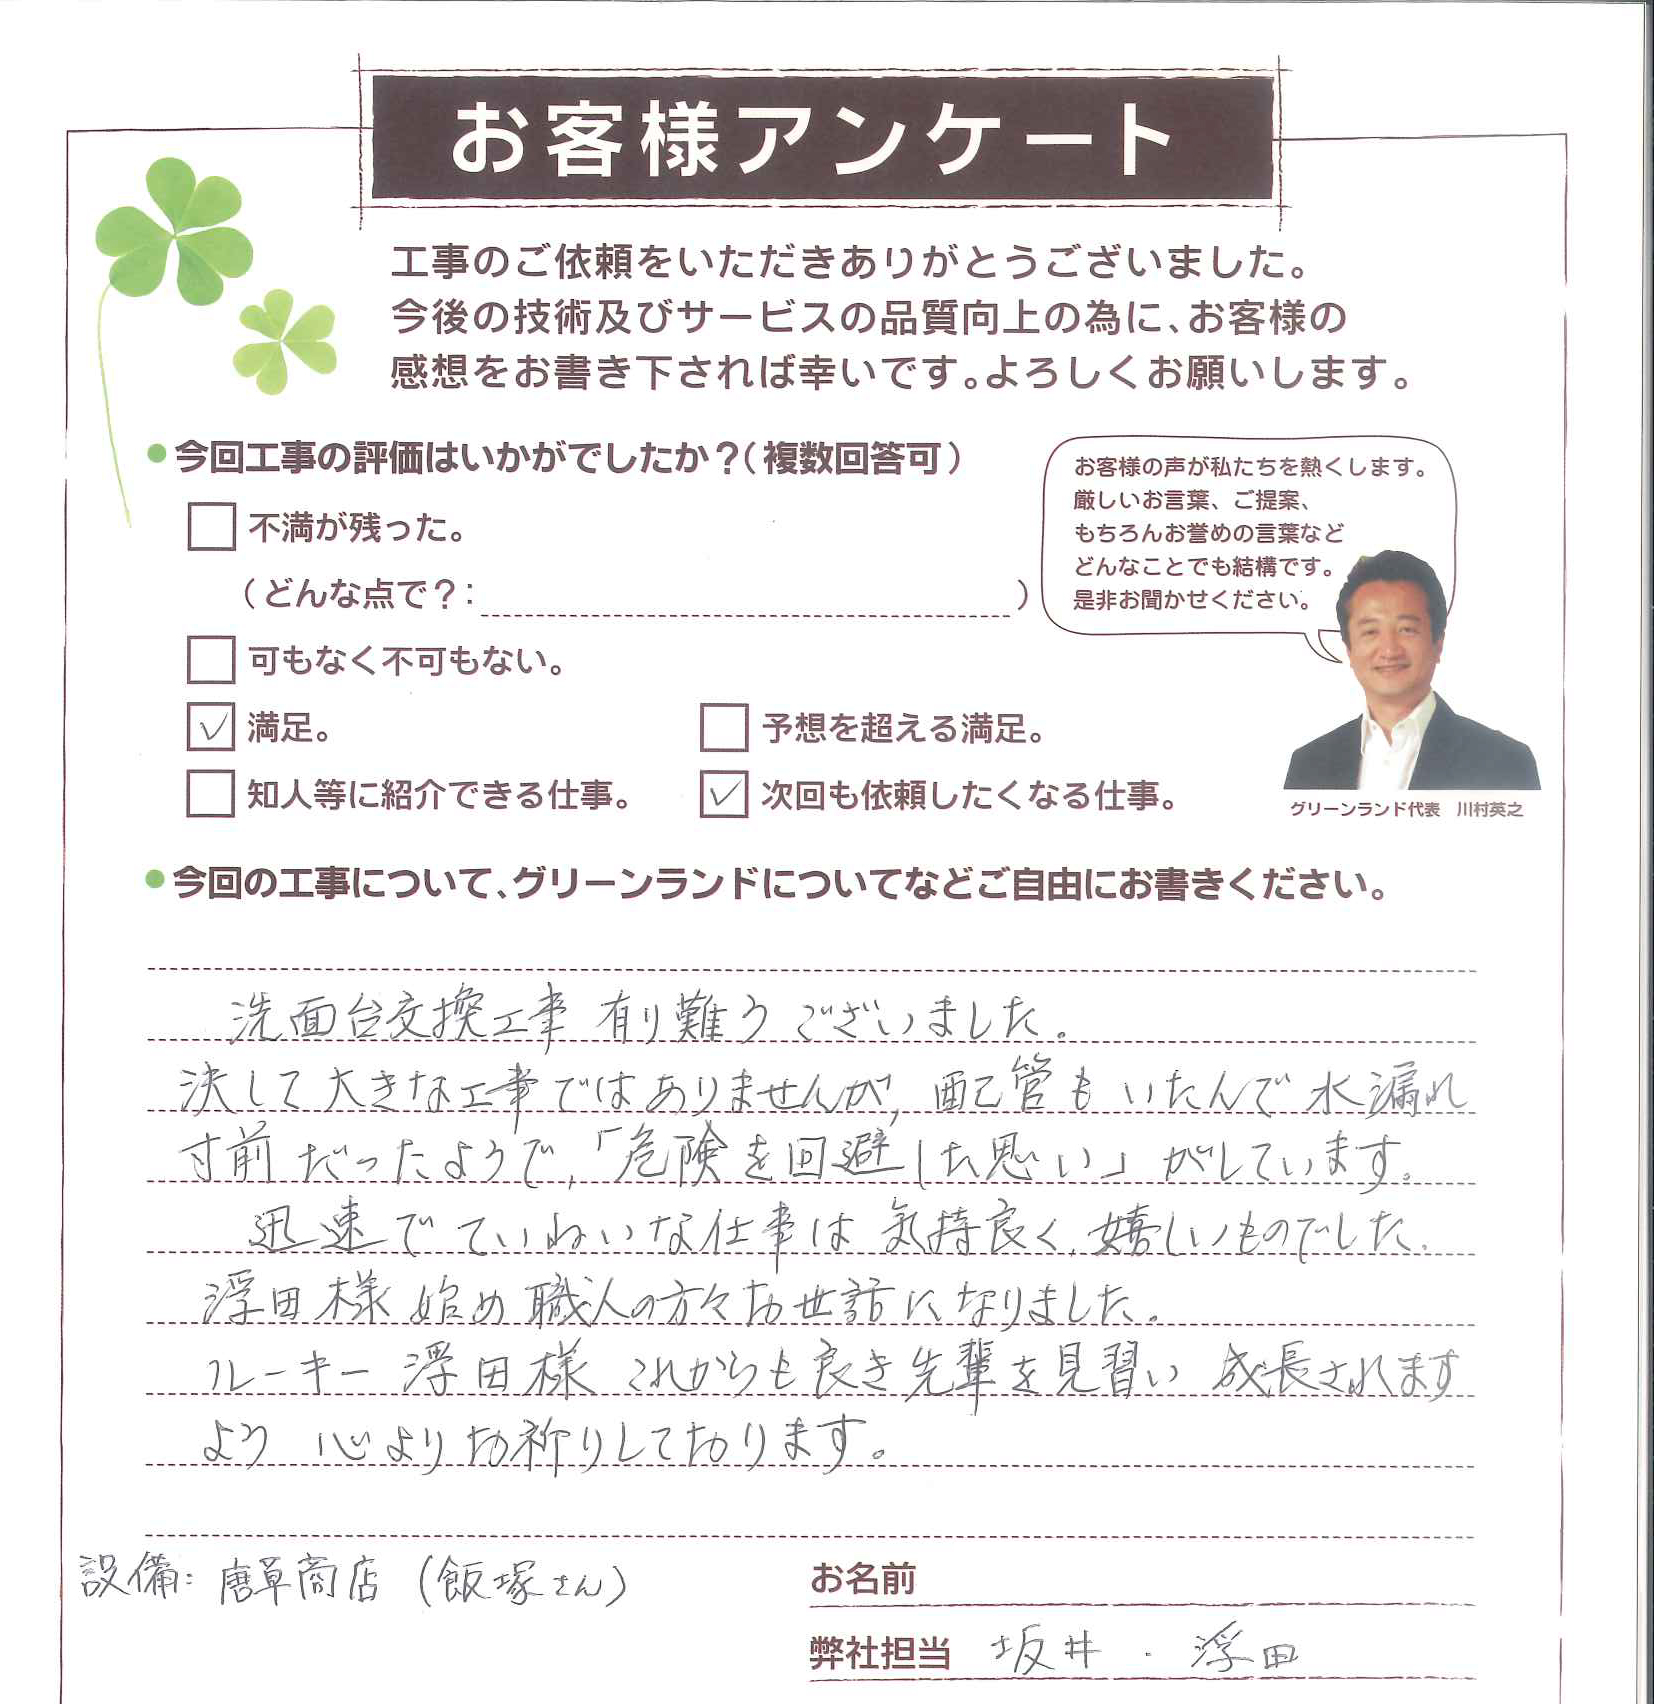 お客様アンケート
工事のご依頼をいただきありがとうございました。
今後の技術及びサービスの品質向上の為に、お客様の
感想をお書き下されば幸いです。よろしくお願いします。
●今回工事の評価はいかがでしたか？（複数回答可）
お客様の声が私たちを熱くします。
厳しいお言葉、ご提案、
もちろんお誉めの言葉など
どんなことでも結構です。
是非お聞かせください。
□ 不満が残った。
（どんな点で？：　　　）
□ 可もなく不可もない。
☑ 満足。
□ 予想を超える満足。
□ 知人等に紹介できる仕事。
☑ 次回も依頼したくなる仕事。
グリーンランド代表　川村英之
●今回の工事について、グリーンランドについてなどご自由にお書きください。
洗面台交換工事 有り難うございました。
決して大きな工事ではありませんが、配管もいたんで水漏れ
寸前だったようで、「危険を回避した思い」がしています。
迅速でていねいな仕事は気持良く、嬉しいものでした。
浮田様始め職人の方々お世話になりました。
ルーキー 浮田様 これからも良き先輩を見習い 成長されます
よう 心よりお祈りしております。
設備：唐草商店（飯塚さん）
お名前
弊社担当 坂井・浮田